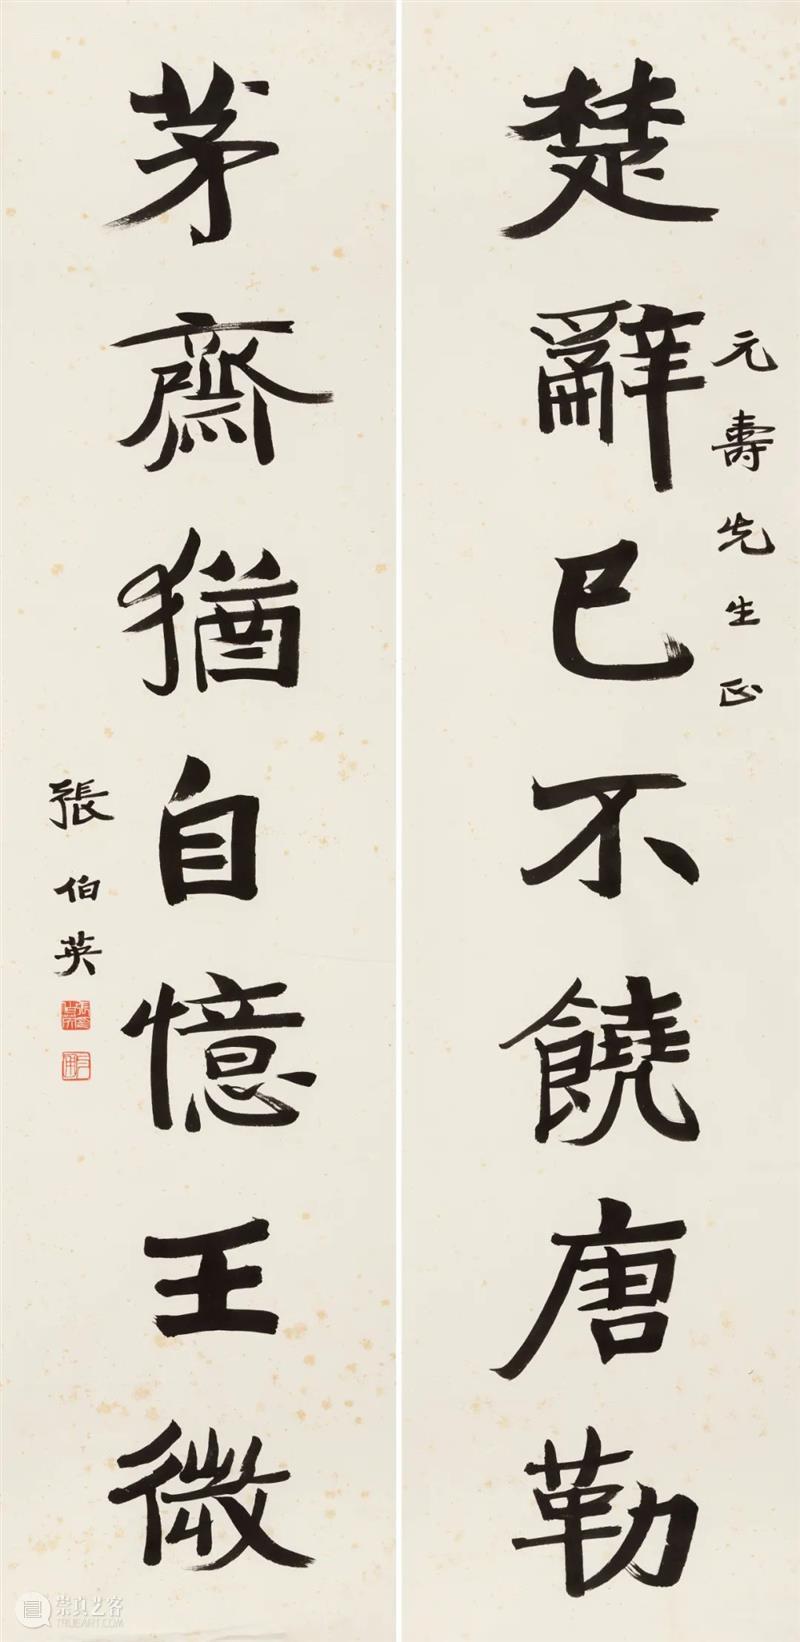 楚辭已不饒唐勒
元壽先生正
茅齋猶自憶王微
張伯英
崇真艺客
TRUEART.COM